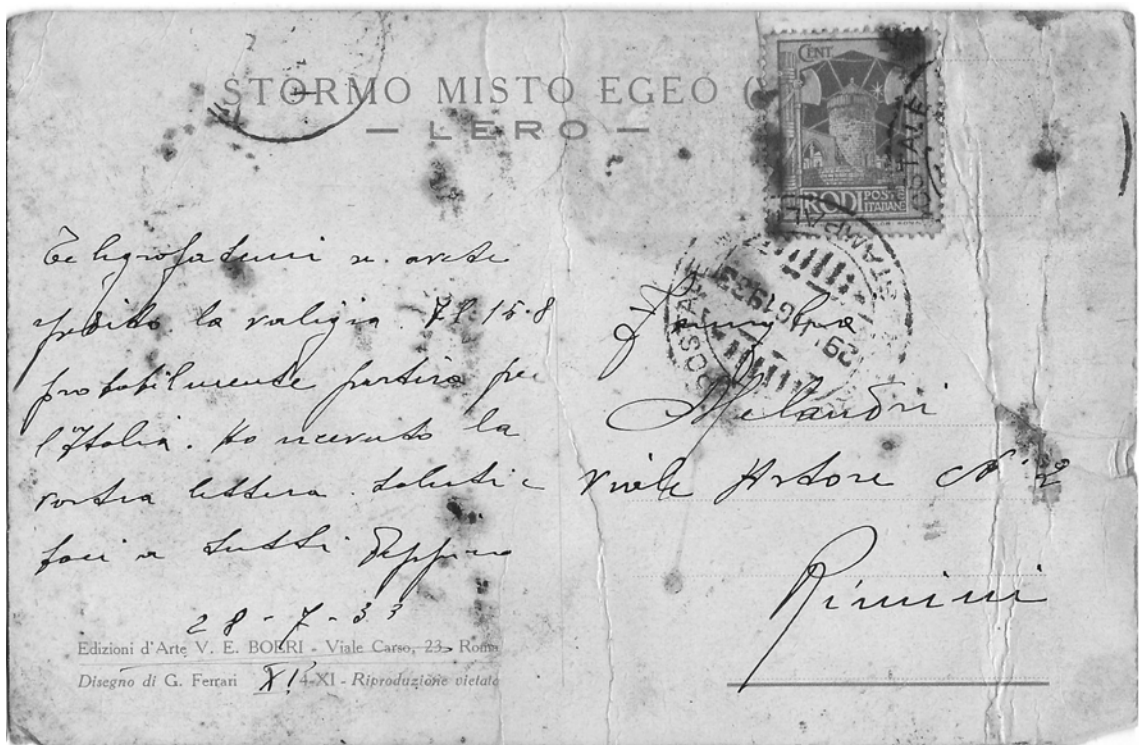 STORMO MISTO EGEO (
— LERO —
CENT.
RODI POSTE ITALIANE
Telegrafatemi se avete
spedito la valigia. Il 15-8
probabilmente partirò per
l'Italia. Ho ricevuto la
vostra lettera. Saluti e
baci a tutti Peppino
28-7-33
XI
Famiglia
Melandri
Viale N° 2
Rimini
Edizioni d'Arte V. E. BOERI - Viale Carso, 23 - Roma
Disegno di G. Ferrari 4-XI - Riproduzione vietata